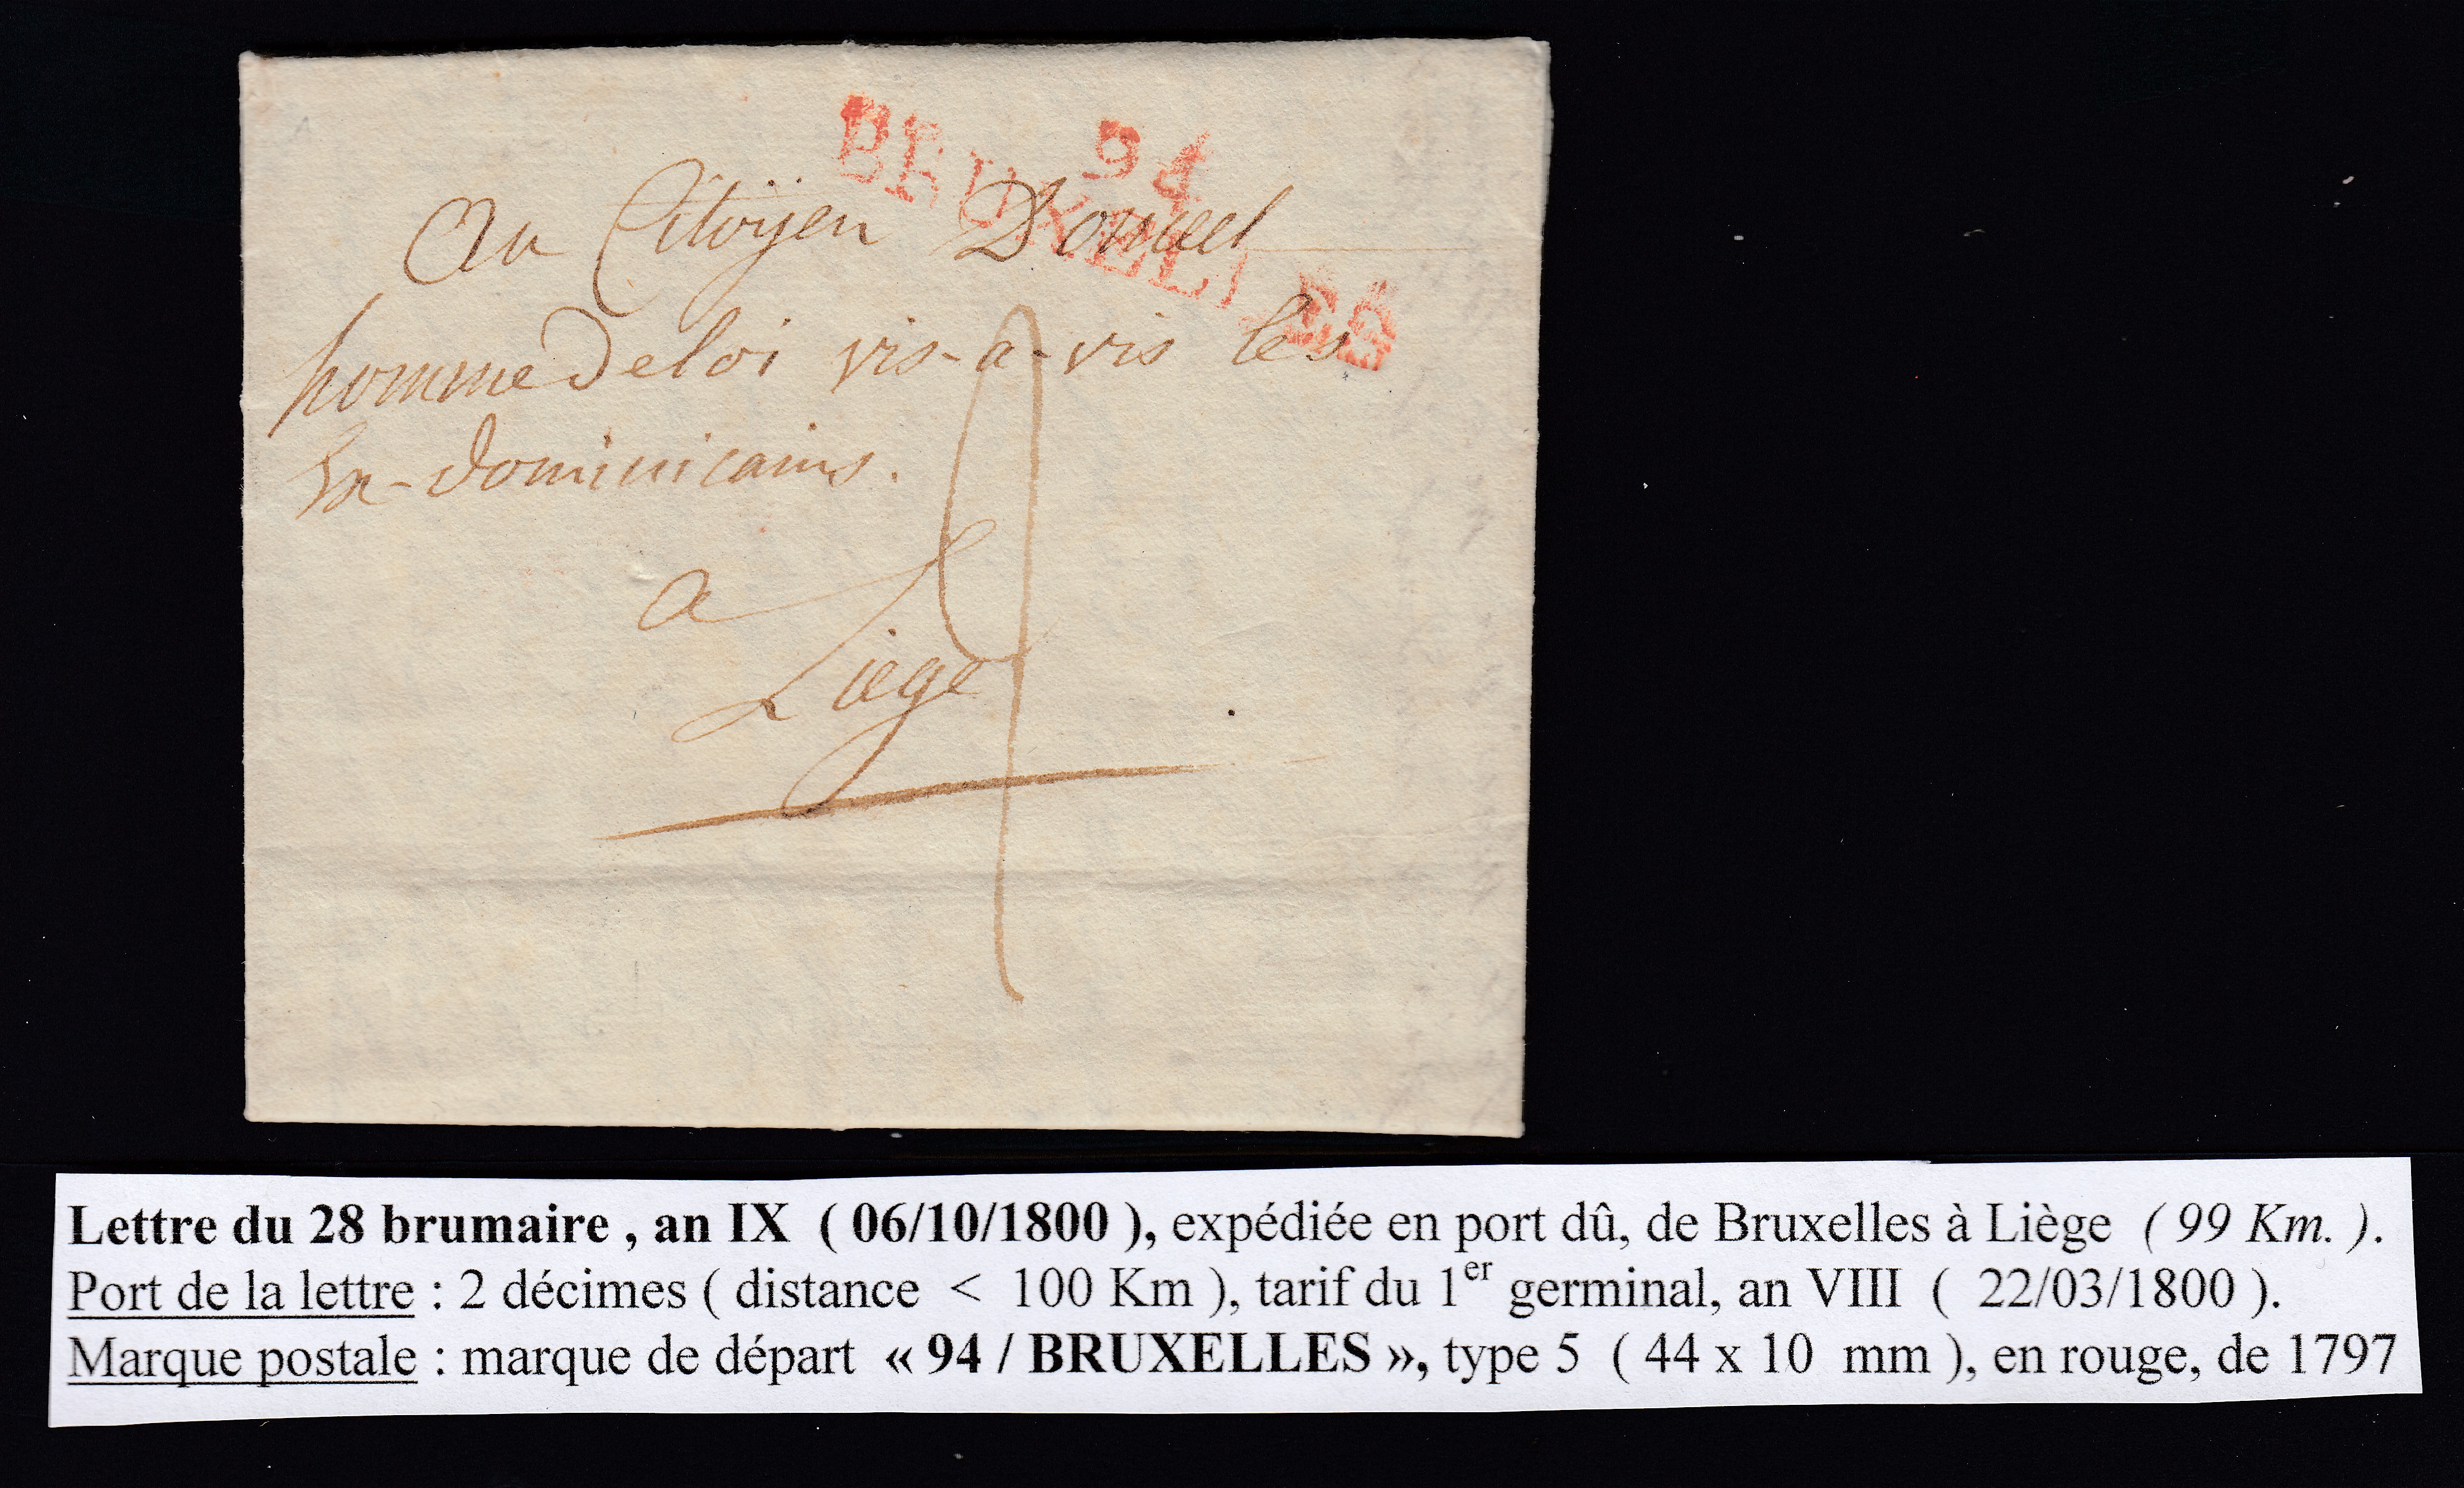 94
BRUXELLES
Au Citoyen Donceel
homme de loi vis-a-vis les
Ex-dominicains.
a
Liege
2
Lettre du 28 brumaire , an IX ( 06/10/1800 ), expédiée en port dû, de Bruxelles à Liège ( 99 Km. ).
Port de la lettre : 2 décimes ( distance < 100 Km ), tarif du 1er germinal, an VIII ( 22/03/1800 ).
Marque postale : marque de départ « 94 / BRUXELLES », type 5 ( 44 x 10 mm ), en rouge, de 1797